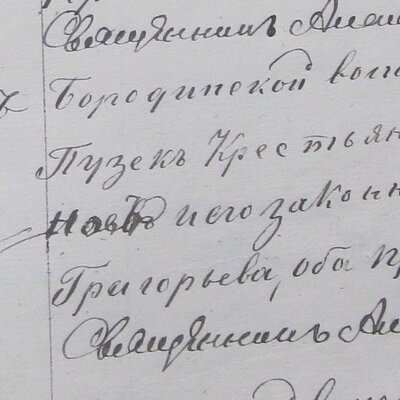 Священникъ
Бородинской
Пузекъ Крестьян
и его законн
Григорьева, оба пр
Священникъ